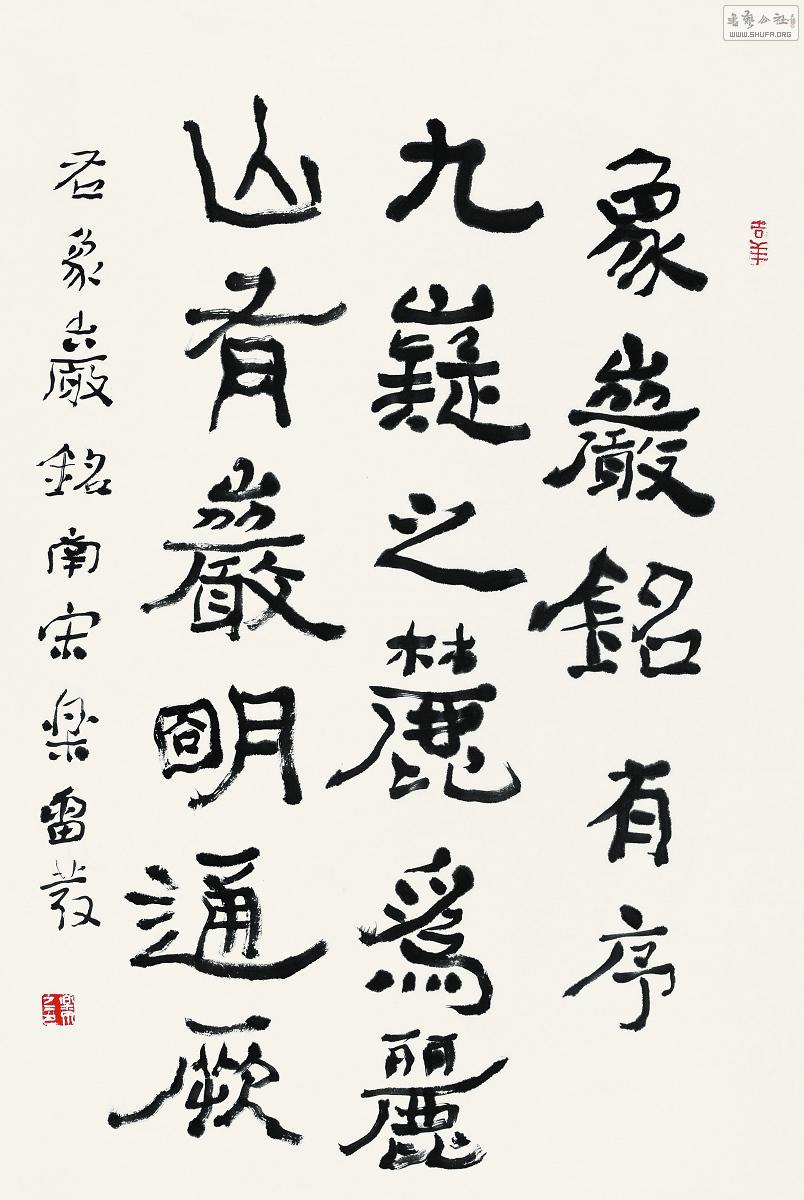 象巖銘 有序
九嶷之麓為麗
山有巖明通厥
右象巖銘南宋樂雷發
吉羊
書藝公社
WWW.SHUFA.ORG